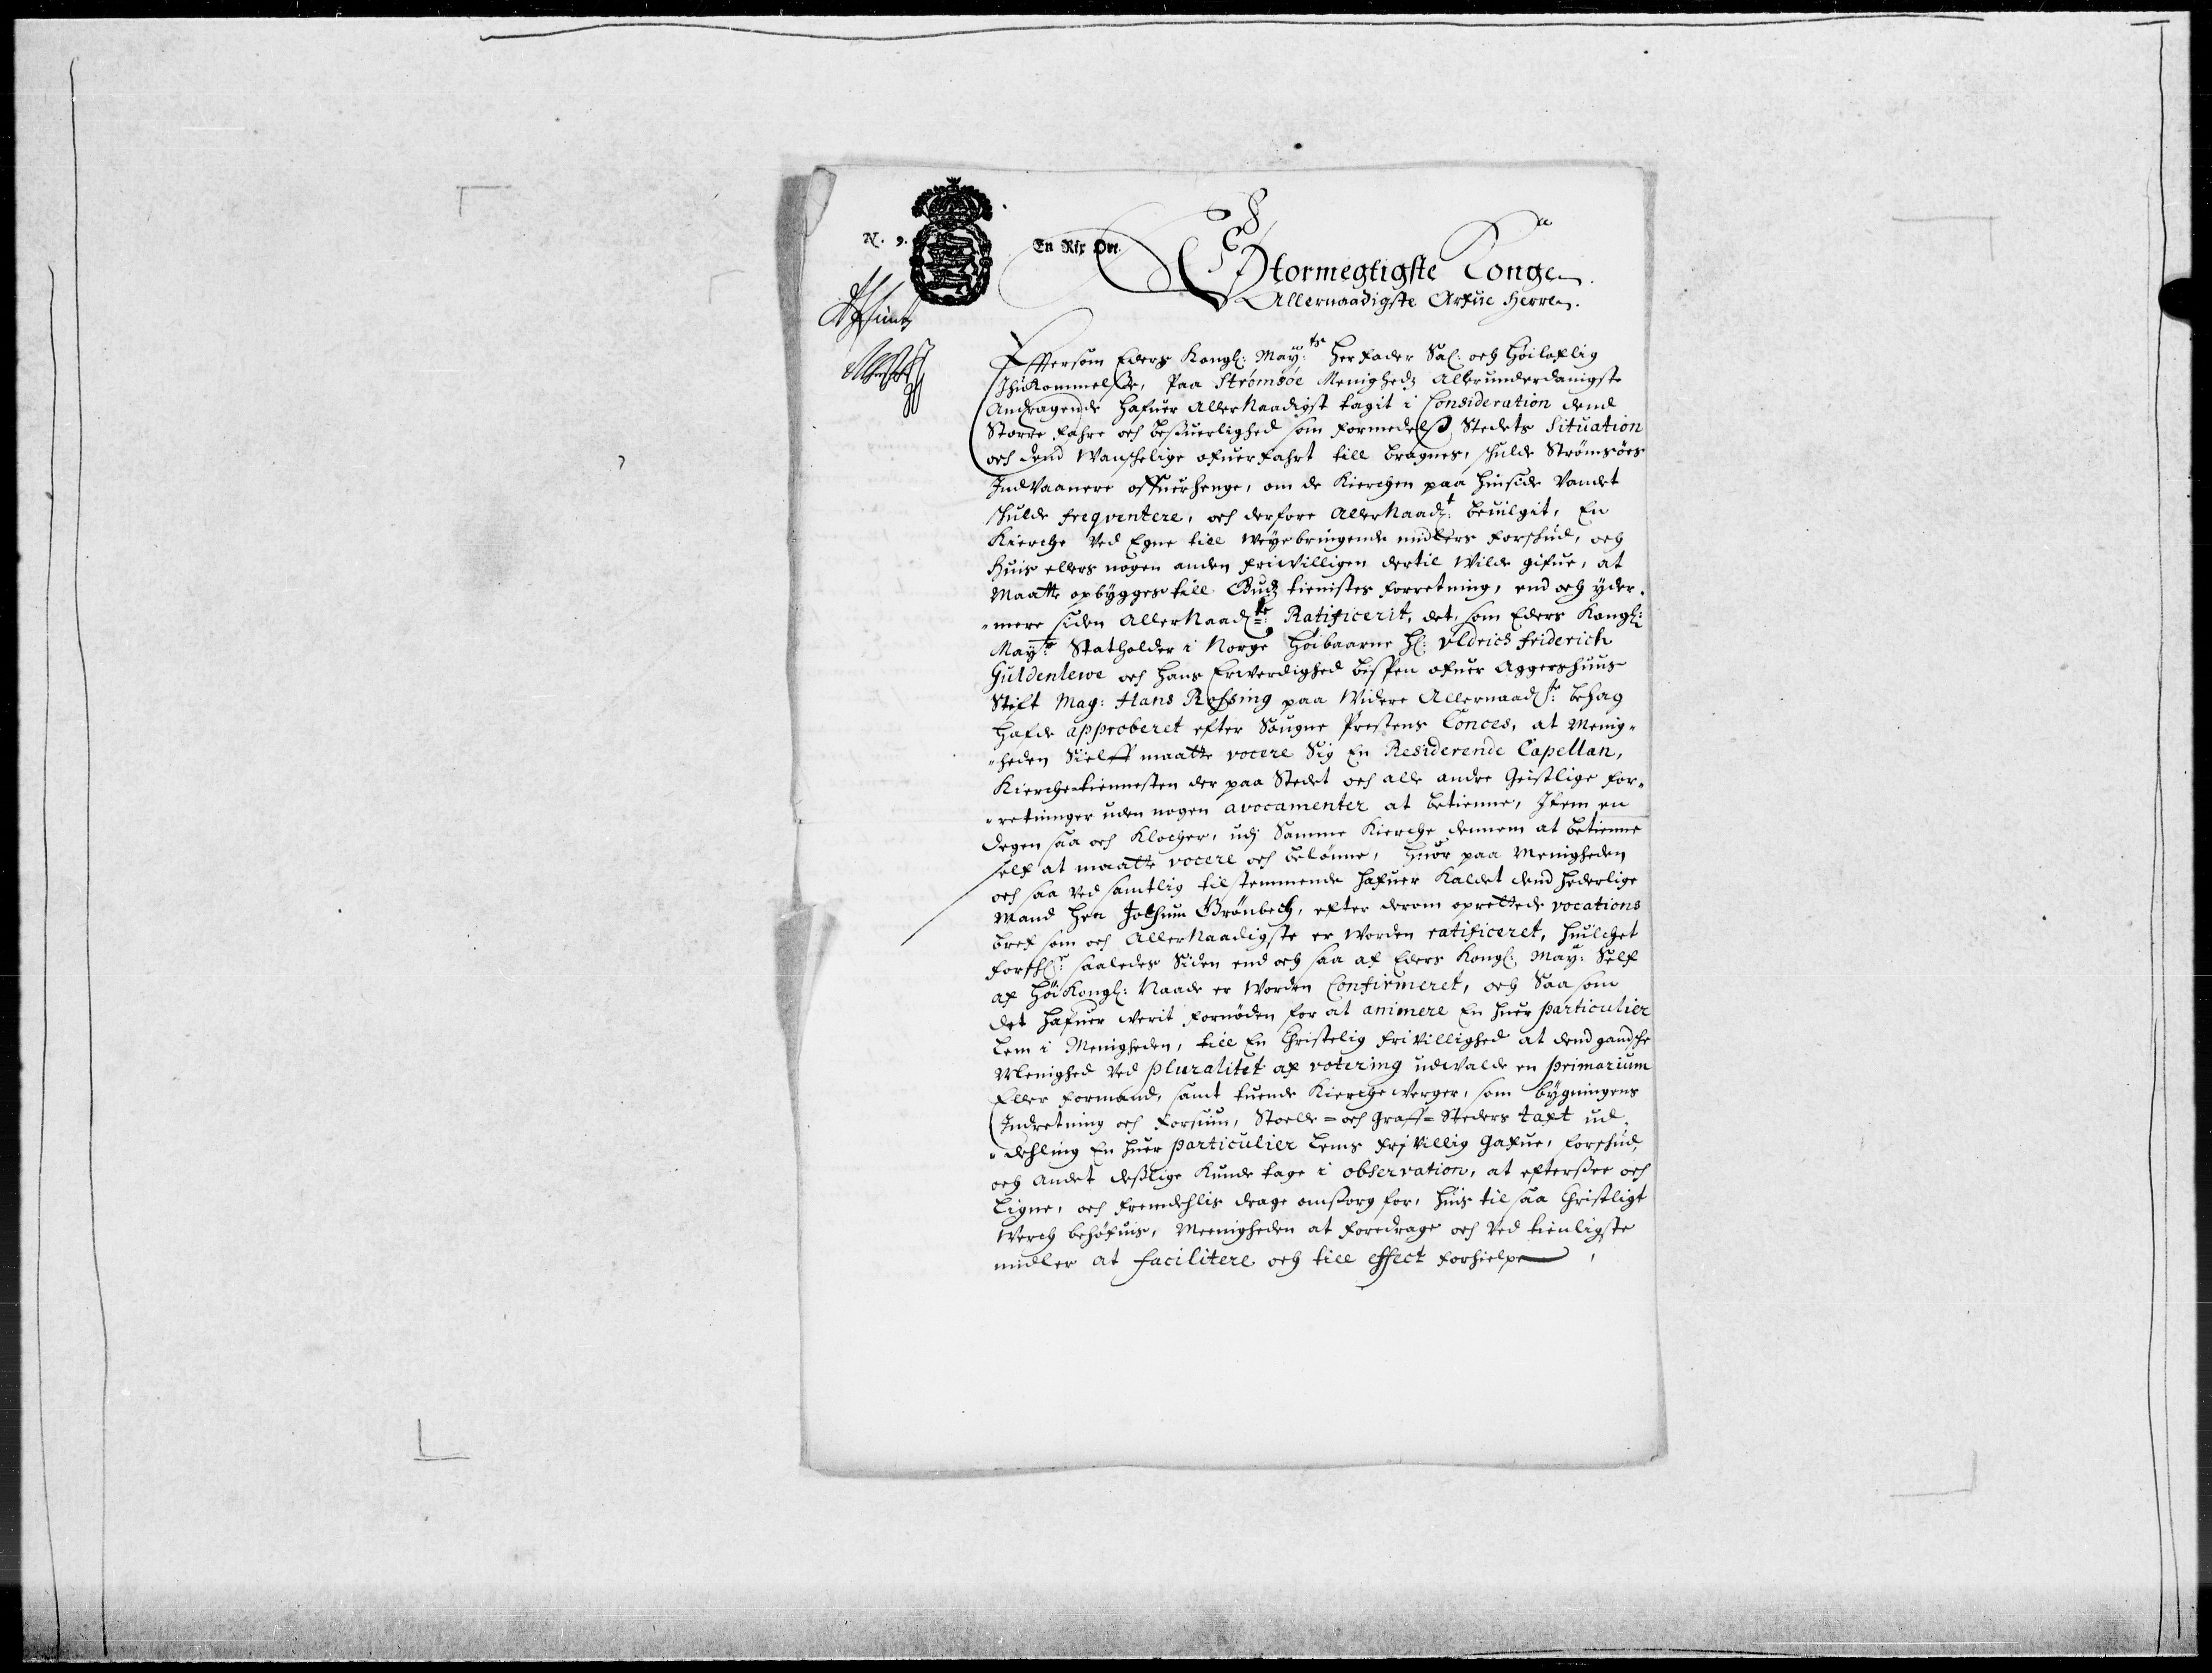 N. 9.
En Rix Ort.
Stormegtigste Konge
Allernaadigste Arfue Herre.
Effersom Eders Kongl: May:ts Her Fader Sal: och Høiloflig
Ihukommelse, Paa Strømsöe Menigheds Allerunderdanigste
Andragende hafuer AllerNaadigst tagit i Consideration dend
Storre fahre och besuerlighed som formedelst Stedets Situation
och dend Wanschelige ofuerfahrt till bragnes, schulde Strømsöes
IndVaanere offuerhenge, om de Kierchen paa hinside Vandet
schulde freqventere, och derfore AllerNaad:t bevilgit, En
Kierche Ved Egne till weyebringende midlers forskud, och
huis ellers nogen anden friwilligen dertil Wilde gifue, at
Maatte opbygges till Gudz tienistes forretning, end och yder-
mere siden AllerNaad:te Ratificerit, det, som Eders Kongl:
May:ts Statholder i Norge Høibaarne H: Vldrich friderich
Guldenlewe och hans Erwerdighed bispen ofuer Aggershuus
Stift Mag: Hans Rosing paa Widere Allernaad:te behag
hafde approberet efter Sougne Prestens Conces, at Menig-
heden Sielff maatte vocere Sig En Residerende Capellan,
Kierchetiennesten der paa Stedet och alle andre Geistlige for-
retninger uden nogen avocamenter at betienne, Item en
Degen saa och Klocher, udj Samme Kierche dennem at betienne
self at maatte vocere och belønne, huor paa Menigheden
och saa Ved samtlig tilstemmende hafuer Kaldet dend hederlige
Mand Her Jochum Grönbech, efter derom oprettede vocations
bref som och AllerNaadigste er Worden ratificeret, huilchet
saaledes Siden end och saa af Eders Kongl: May: Self
af Høi Kongl: Naade er Worden Confirmeret, och Saasom
det hafuer werit fornøden for at animere En huer particulier
Lem i Menigheden, till En Christelig friVillighed at dend gandsche
Menighed Ved pluralitet af votering udwalde en primarium
Eller formand, samt tuende Kierchewerger, som bygningens
Indretning och forsiun, Stoele- och Graff-Steders taxt ud-
dehling En huer particulier Lems friVillig Gafue, forskud,
och Andet deslige Kunde tage i observation, at eftersee och
Ligne, och fremdehlis drage omsorg for, huis til saa Christligt
Werch behøfuis, Meenigheden at foredrage och Ved tienligste
midler at facilitere och till effect forhielpe